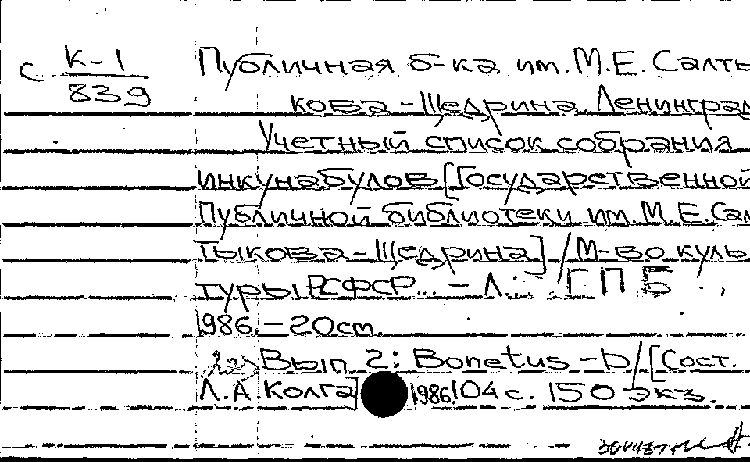 с К-1 Публичная б-ка им. М.Е. Салты
839 кова-Щедрина. Ленинград
Учетный список собрания
инкунабулов [Государственной
Публичной библиотеки им. М.Е. Сал
тыкова-Щедрина] / М-во куль
туры РСФСР... - Л.: ГПБ,
1986. - 20 см.
Вып. 2: Bonetus - D / [Сост.
Л.А. Колга] 1986. 104 с. 150 экз.